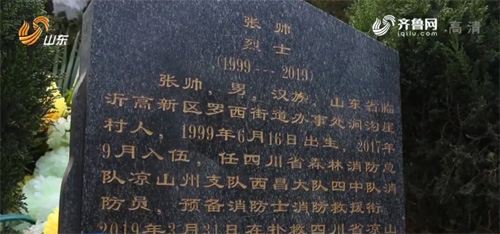 山东
齐鲁网
iqilu.com
高清
张帅
烈士
(1999---2019)
张帅，男，汉族，山东省临
沂高新区罗西街道办事处洞沟崖
村人，1999年6月16日出生，2017年
9月入伍，任四川省森林消防总
队凉山州支队西昌大队四中队消
防员，预备消防士消防救援衔
2019年3月31日在扑救四川省凉山